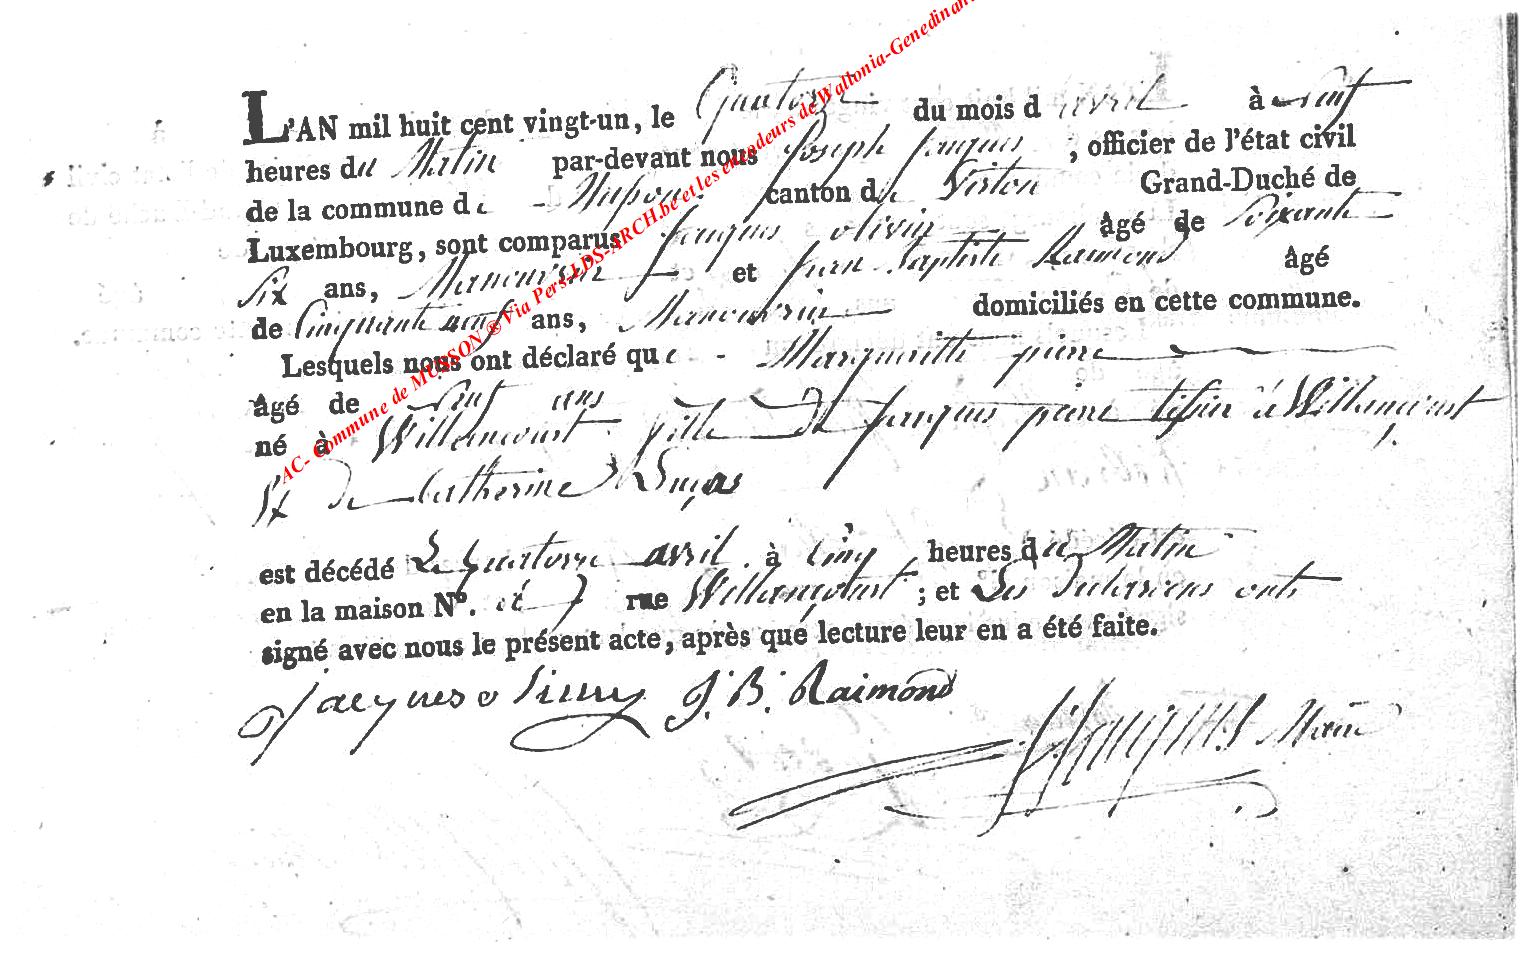 L'AN mil huit cent vingt-un, le Quatorze du mois d avril à neuf
heures du Matin par-devant nous Joseph Jacques, officier de l'état civil
de la commune de Musson canton de Virton Grand-Duché de
Luxembourg, sont comparus Jacques olivier âgé de Soixante
Six ans, Manouvrier et Jean Baptiste Raimond âgé
de Cinquante neuf ans, Manouvrier domiciliés en cette commune.
Lesquels nous ont déclaré que Margueritte pierre
âgé de Sept ans
né à Willancourt fille de Jacques pierre tissier à Willancourt
Et de Catherine
est décédé Le Quatorze avril à Cinq heures du Matin
en la maison Nº. rue Willancourt ; et Les Declarans onts
signé avec nous le présent acte, après que lecture leur en a été faite.
jacques J. B. Raimond Jacques Maire
AC- Commune de MUSSON ® Via Pers-LDS-ARCH.be et les encodeurs de Wallonia-Genedinant